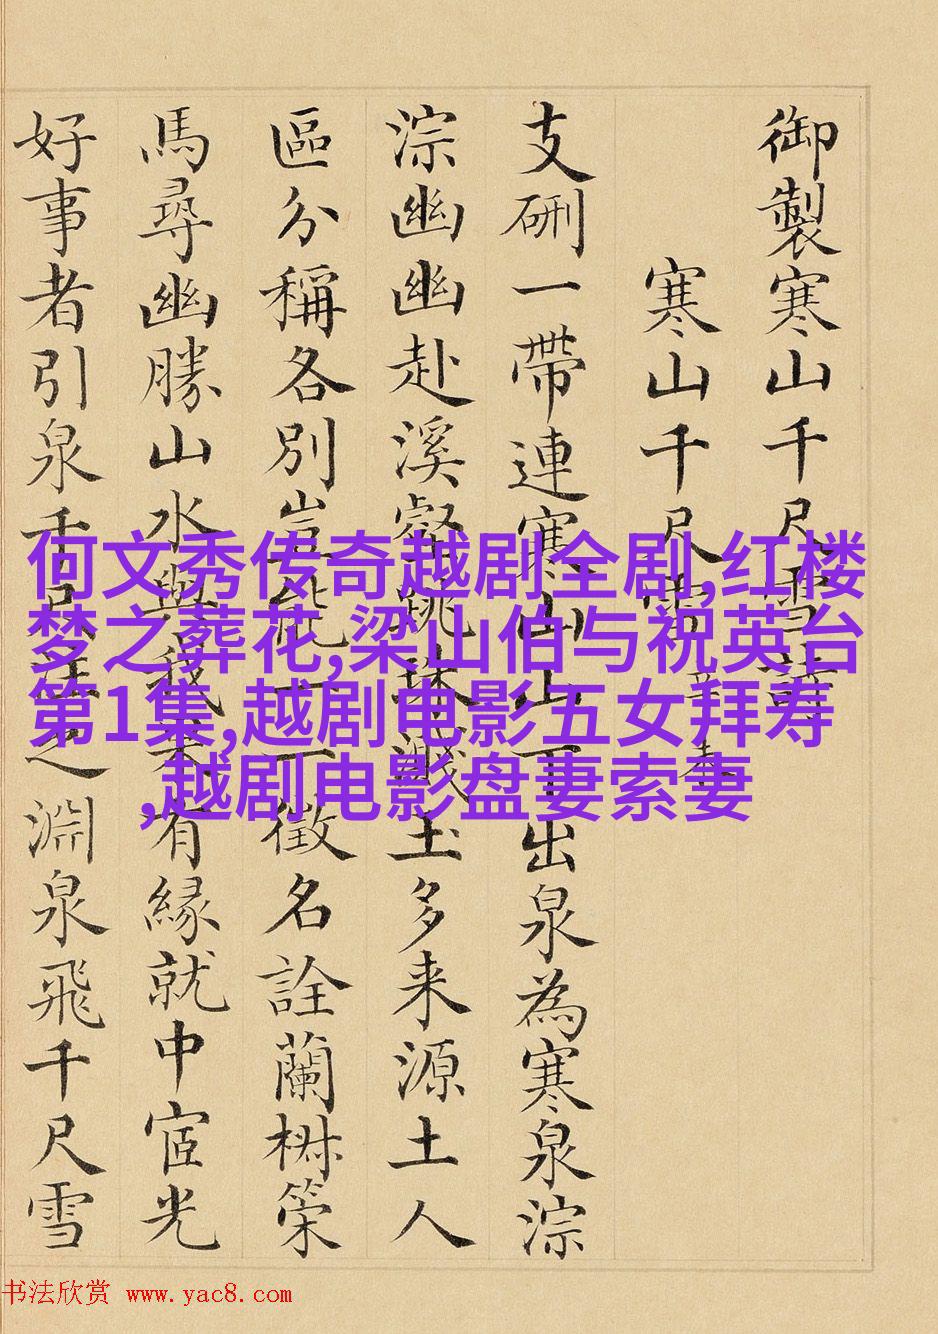 御製寒山千尺雪詩
寒山千尺雪 辛未
支硎一帶連寒山山下出泉為寒泉淙
淙幽幽赴溪壑跳珠濺玉多来源土人
區分稱各別豈能一一徵名詮蘭椒策
馬尋幽勝山水與我未有緣就中宧光
好事者引泉千尺注之淵泉飛千尺雪
何文秀传奇越剧全剧,红楼
梦之葬花,梁山伯与祝英台
第1集,越剧电影五女拜寿
,越剧电影盘妻索妻
书法欣赏 www.yac8.com